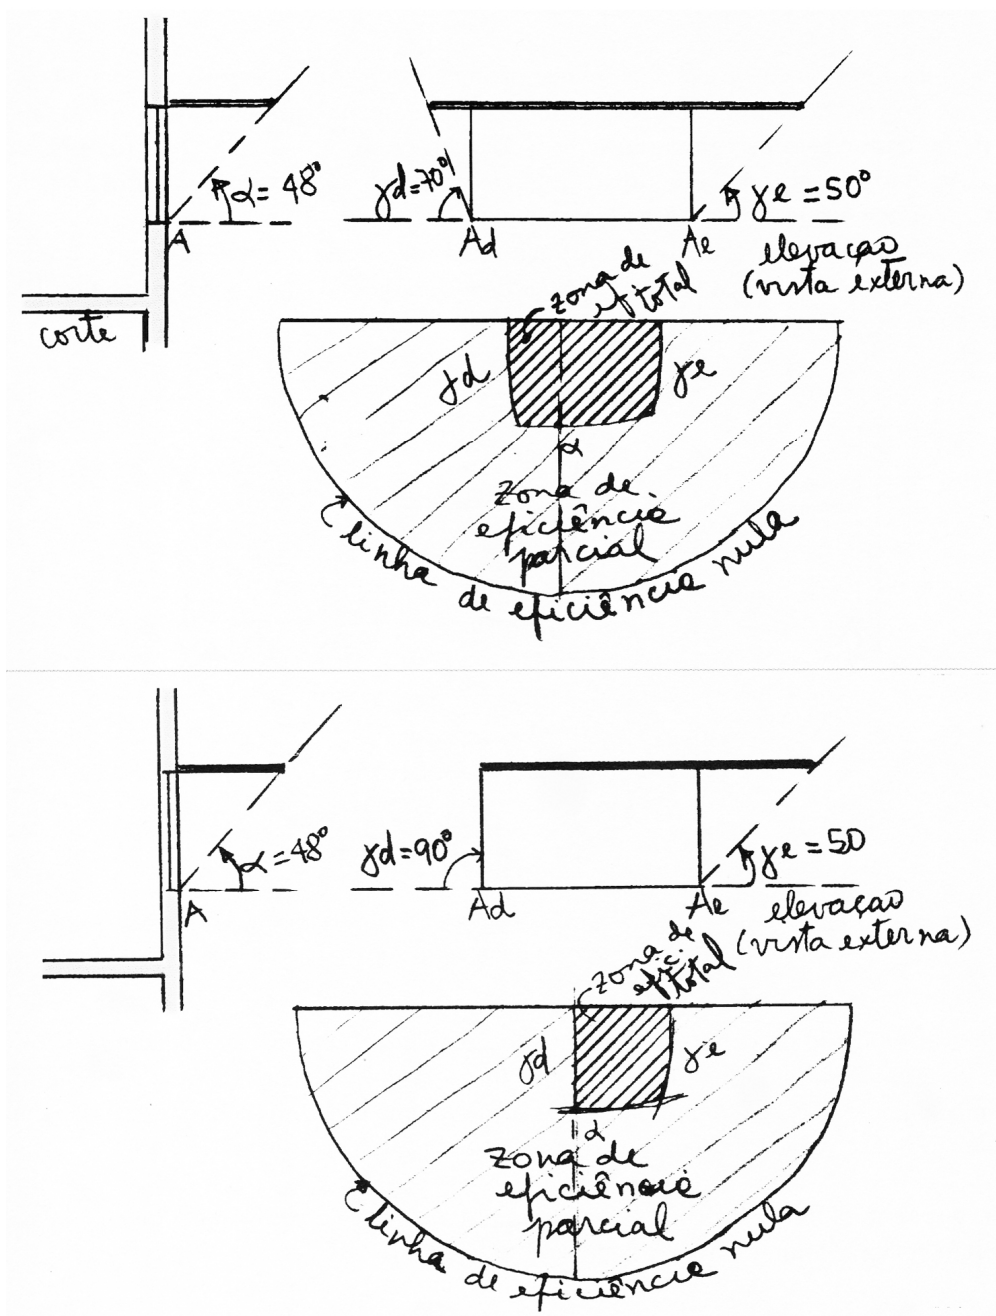 α = 48°
γd=70°
γe = 50°
A
Ad
Ae
elevação
(vista externa)
corte
zona de
ef total
γd
γe
α
zona de
eficiência
parcial
linha de eficiência nula
α = 48°
γd=90°
γe = 50
A
Ad
Ae
elevação
(vista externa)
zona de
efic.
total
γd
γe
α
zona de
eficiência
parcial
linha de eficiência nula